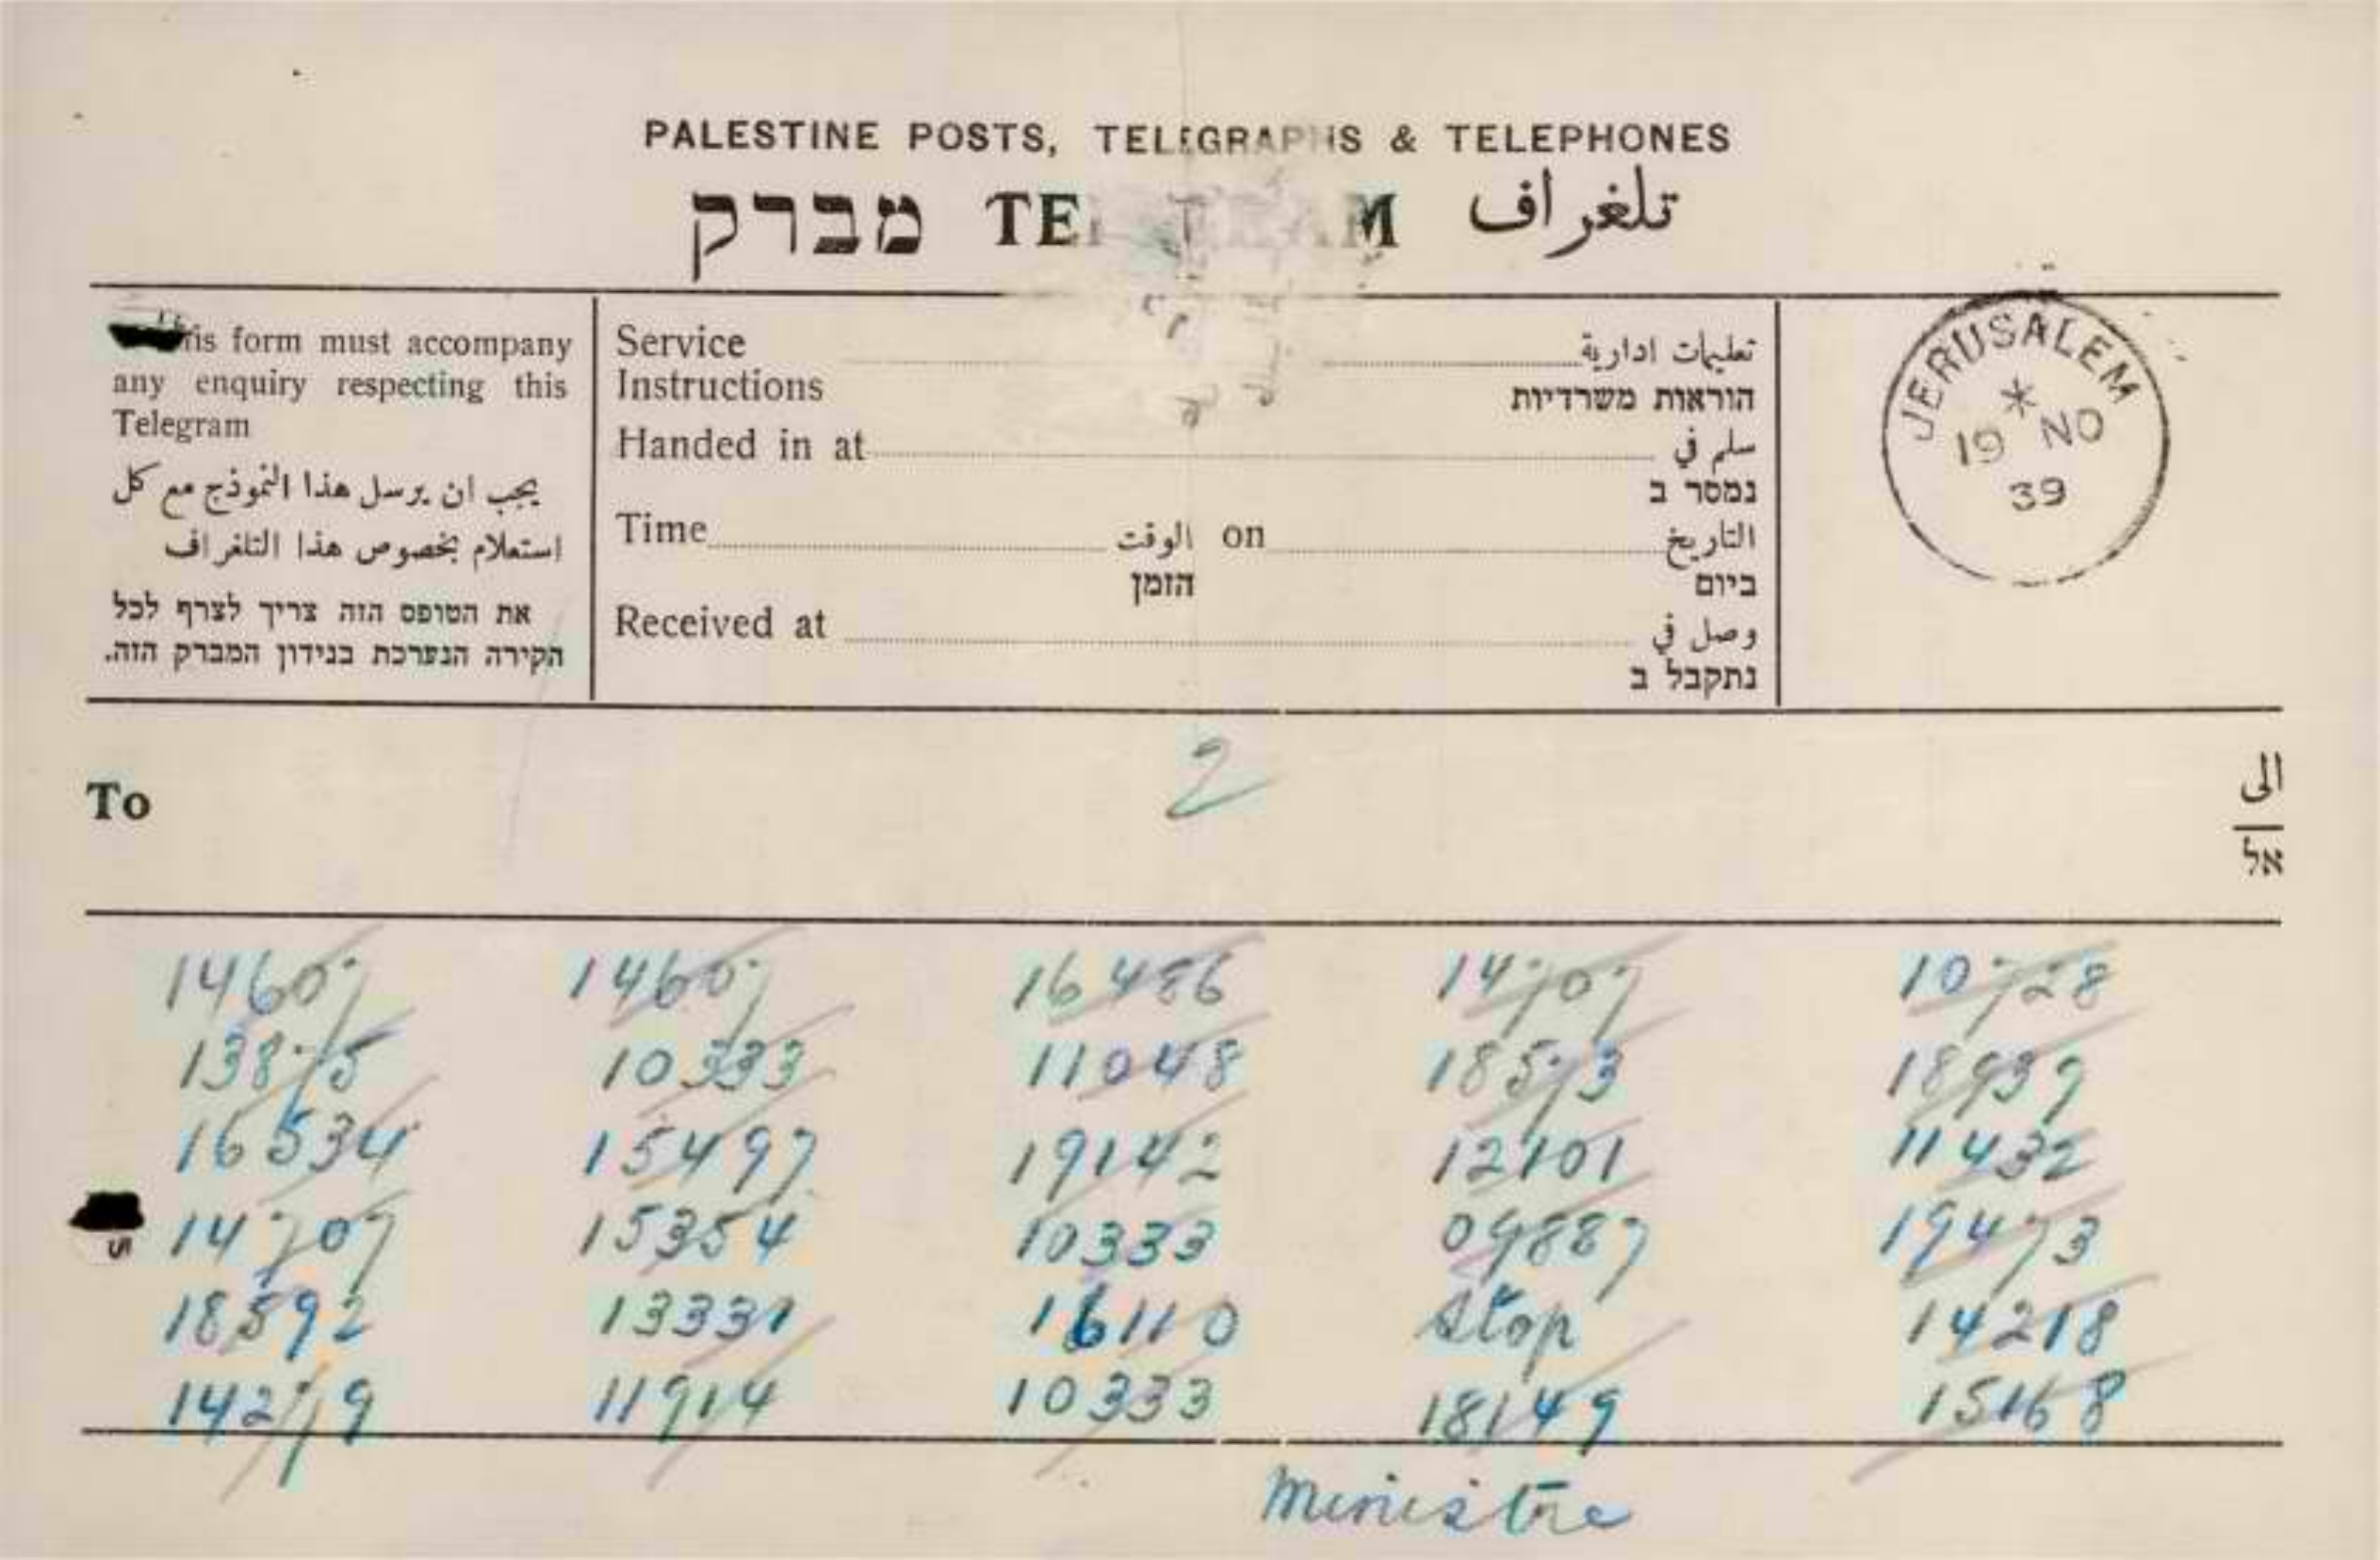 PALESTINE POSTS, TELEGRAPHS & TELEPHONES
מברק TELEGRAM تلغراف
This form must accompany
any enquiry respecting this
Telegram
يجب ان يرسل هذا النموذج مع كل
استعلام بخصوص هذا التلغراف
את הטופס הזה צריך לצרף לכל
חקירה הנערכת בנידון המברק הזה.
Service تعليمات ادارية
Instructions הוראות משרדיות
Handed in at سلم في
נמסר ב
Time الوقت on التاريخ
הזמן ביום
Received at وصل في
נתקבל ב
JERUSALEM
19 NO
39
2
To الى
אל
14607 14607 16486 14707 10728
13875 10333 11048 18573 18939
16534 15497 19142 12101 11432
14707 15354 10333 09887 19473
18592 13331 16110 Stop 14218
14279 11914 10333 18149 15168
Ministre